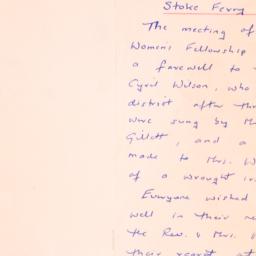 Stoke Ferry
The meeting of
Womens Fellowship
a farewell to
Cyril Wilson, who
district after
were sung by
Gillett, and a
made to Mrs. W
of a wrought
Everyone wished
well in their
the Rev. & Mrs.
their regret at